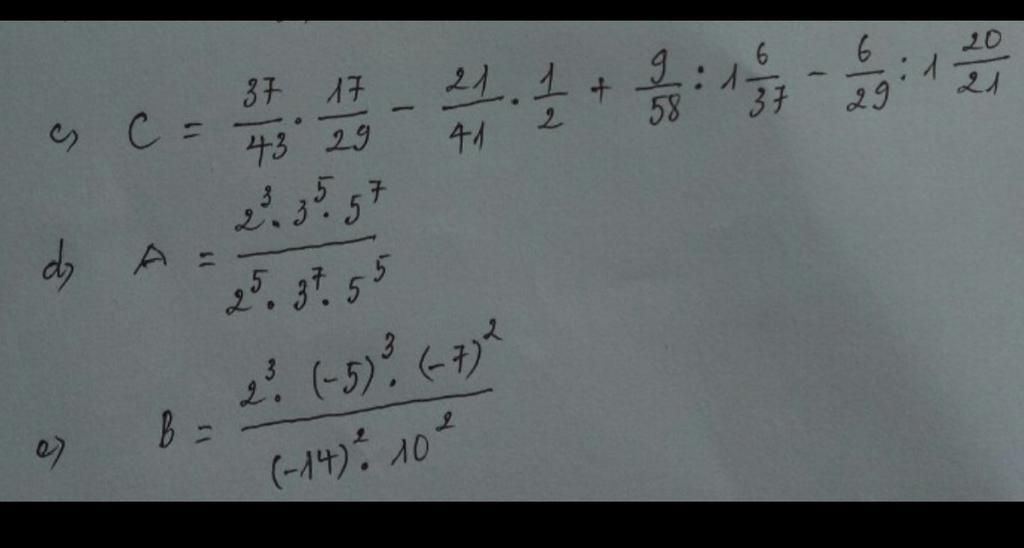 c) C = 37/43 . 17/29 - 21/41 . 1/2 + 9/58 : 1 6/37 - 6/29 : 1 20/21
d) A = 2^3 . 3^5 . 5^7 / 2^5 . 3^7 . 5^5
e) B = 2^3 . (-5)^3 . (-7)^2 / (-14)^2 . 10^2